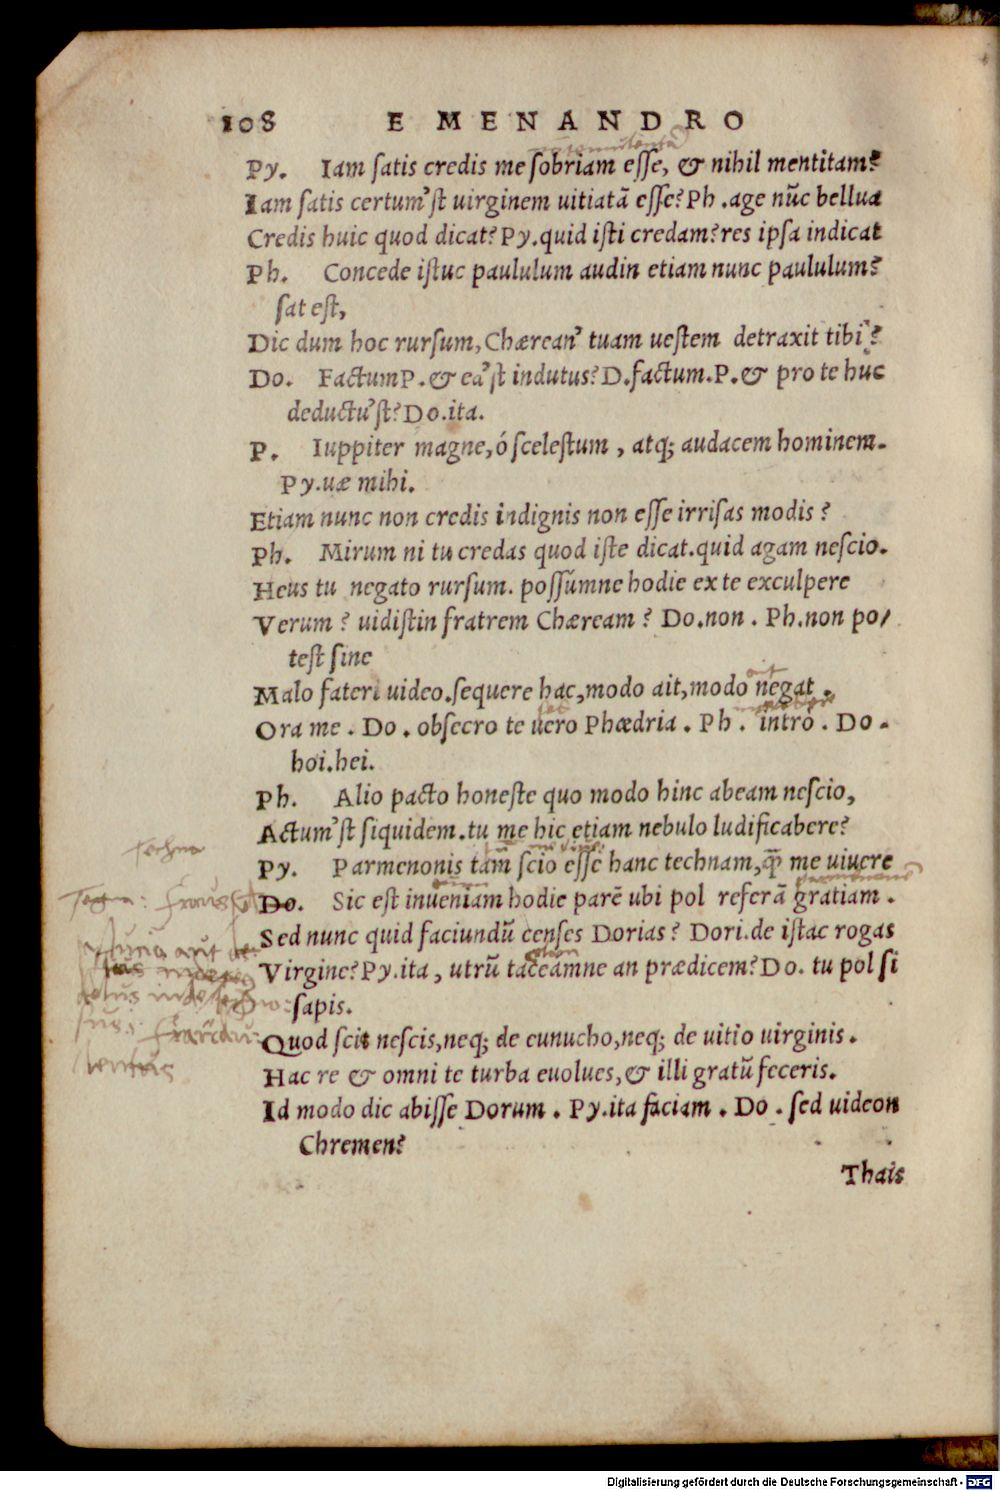 108 E MENANDRO
Py. Iam ſatis credis me ſobriam eſſe, & nihil mentitam?
Iam ſatis certum'ſt uirginem uitiatã eſſe? Ph .age nũc bellua
Credis huic quod dicat? Py.quid iſti credam? res ipſa indicat
Ph. Concede iſtuc paululum audin etiam nunc paululum?
ſat eſt,
Dic dum hoc rurſum, Chærean' tuam ueſtem detraxit tibi?
Do. Factum P. & ea'ſt indutus? D.factum.P. & pro te huc
deductu'ſt? Do.ita.
P. Iuppiter magne, ó ſceleſtum , atq; audacem hominem.
Py.uæ mihi.
Etiam nunc non credis indignis non eſſe irriſas modis ?
Ph. Mirum ni tu credas quod iſte dicat.quid agam neſcio.
Heus tu negato rurſum. poſſũmne hodie ex te exculpere
Verum ? uidiſtin fratrem Chæream ? Do.non . Ph.non po/
teſt ſine
Malo fateri uideo.ſequere hac,modo ait,modo negat .
ait
Ora me . Do . obſecro te uero Phædria . Ph . intrò . Do .
hoi.hei.
Ph. Alio pacto honeſte quo modo hinc abeam neſcio,
Actum'ſt ſiquidem.tu me hic etiam nebulo ludificabere?
techna
Py. Parmenonis tam ſcio eſſe hanc technam, q̃ me uiuere
fraus
Do. Sic eſt inueniam hodie parẽ ubi pol referã gratiam .
Sed nunc quid faciundũ cenſes Dorias ? Dori.de iſtac rogas
Virgine? Py.ita , utrũ taceamne an prædicem? Do. tu pol ſi
ſapis.
Quod ſcis neſcis,neq; de eunucho,neq; de uitio uirginis .
lentus
Hac re & omni te turba euolues,& illi gratũ feceris.
Id modo dic abiſſe Dorum . Py.ita faciam . Do . ſed uideon
Chremen?
Thais
Digitalisierung gefördert durch die Deutsche Forschungsgemeinschaft - DFG